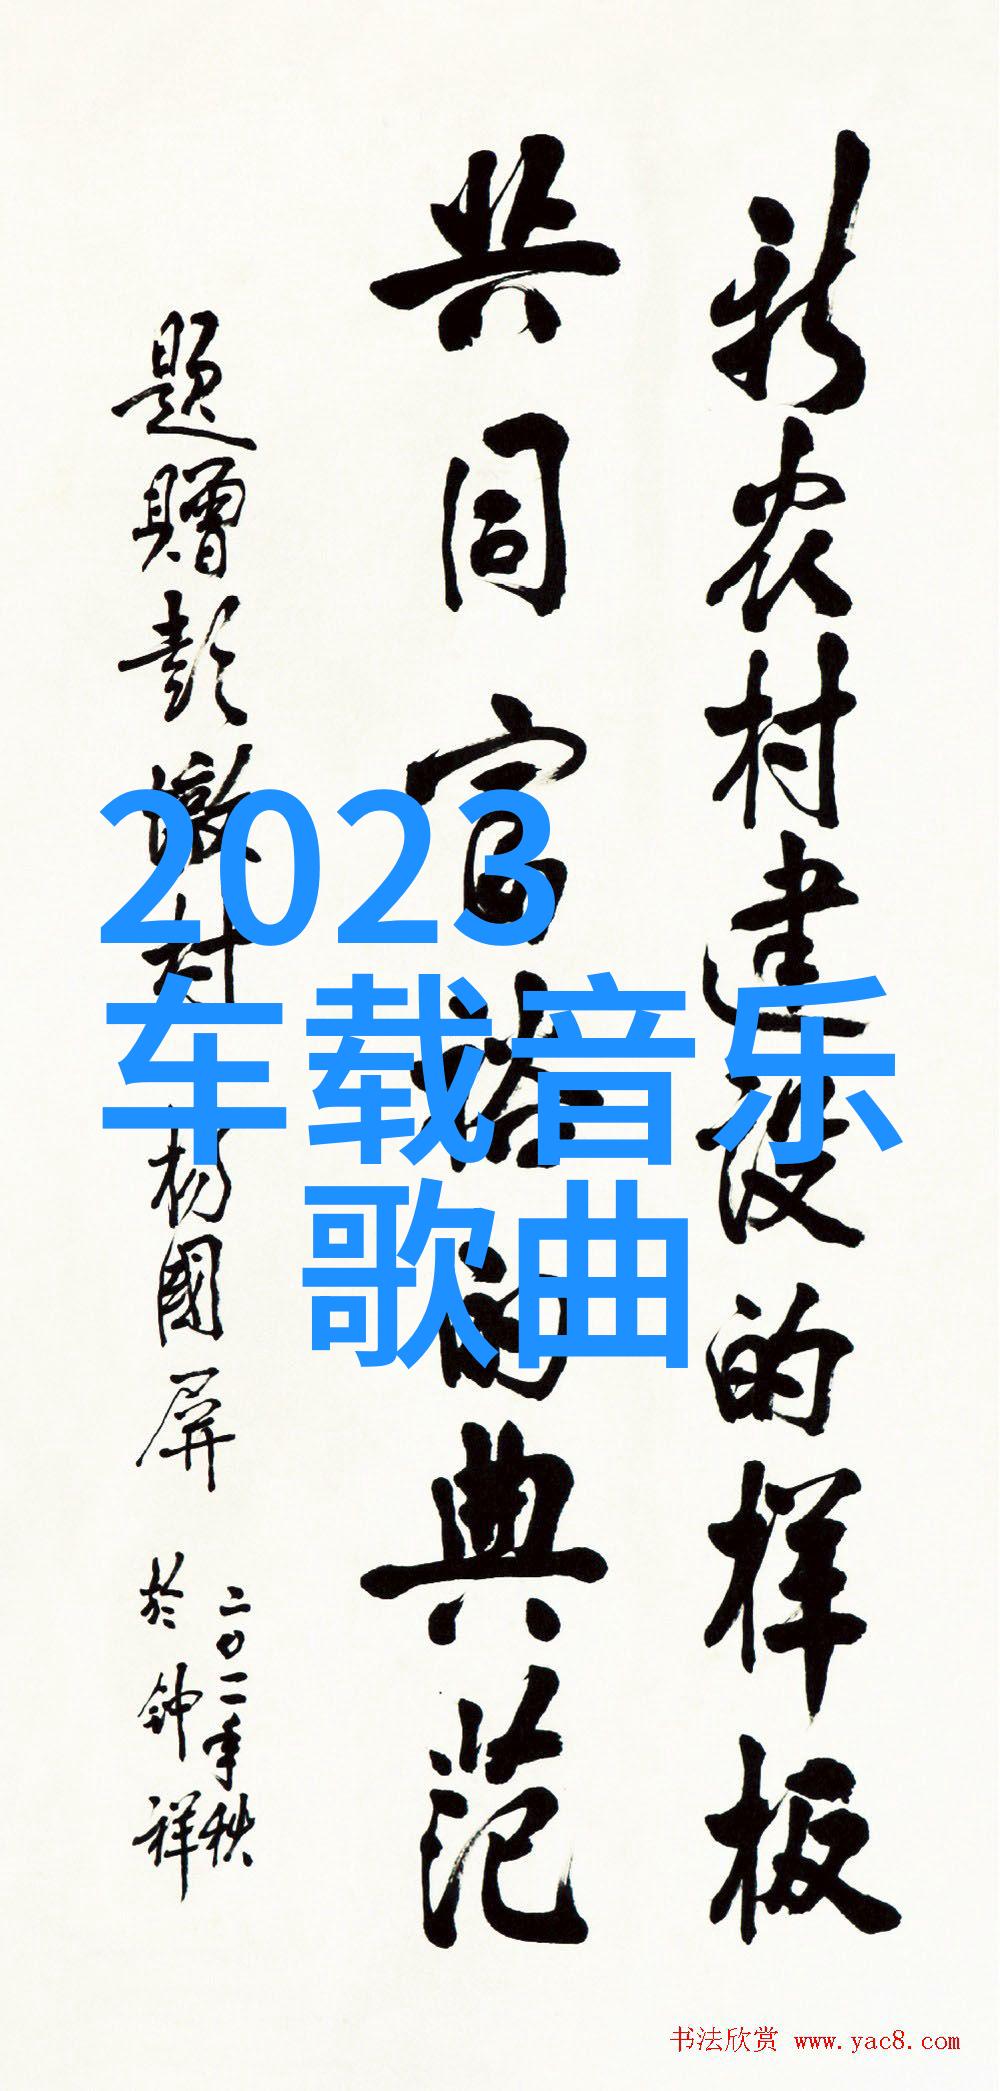 新农村建设的样板
共同富裕的典范
题赠彭墩村杨国屏
二〇一一年秋
於钟祥
2023
车载音乐
歌曲
书法欣赏 www.yac8.com